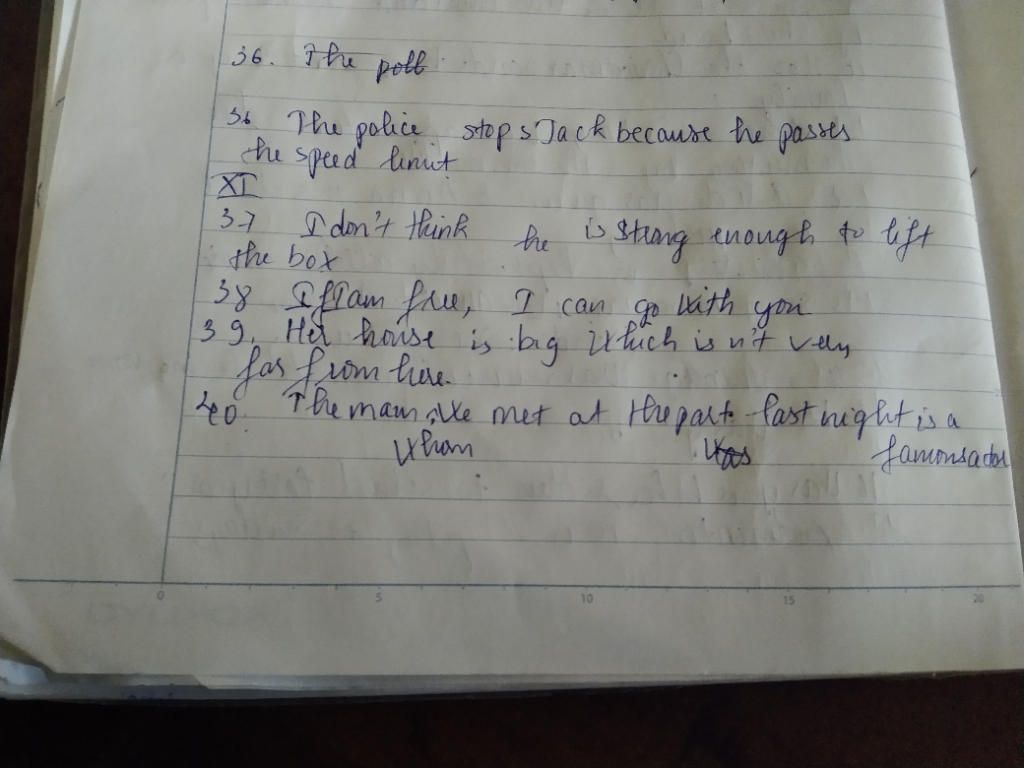 36. The poll
36 The police stops Jack because he passes
the speed limit
XI
37 I don't think he is strong enough to lift
the box
38 If I am free, I can go with you
39. Her house is big which isn't very
far from here.
40. The man, we met at the part last night is a
whom was famous actor
0 5 10 15 20